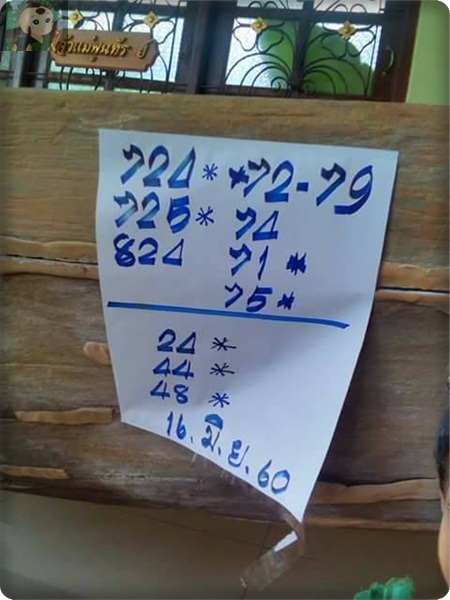 724* *72-79
725* 74
824 71*
75*
24*
44*
48*
16.มิ.ย.60